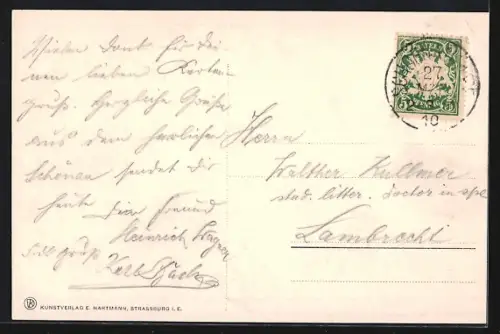 Vielen Dank für Dei-
nen lieben Karten-
gruß. Herzliche Grüße
aus dem herrlichen
Schönau sendet dir
heute Dein Freund
Heinrich Wagner
Karl
Herrn
Walther Kullmer
stud. litter. doctor in spe
Lambrecht
27
10
5 5
KUNSTVERLAG E. HARTMANN, STRASSBURG I. E.